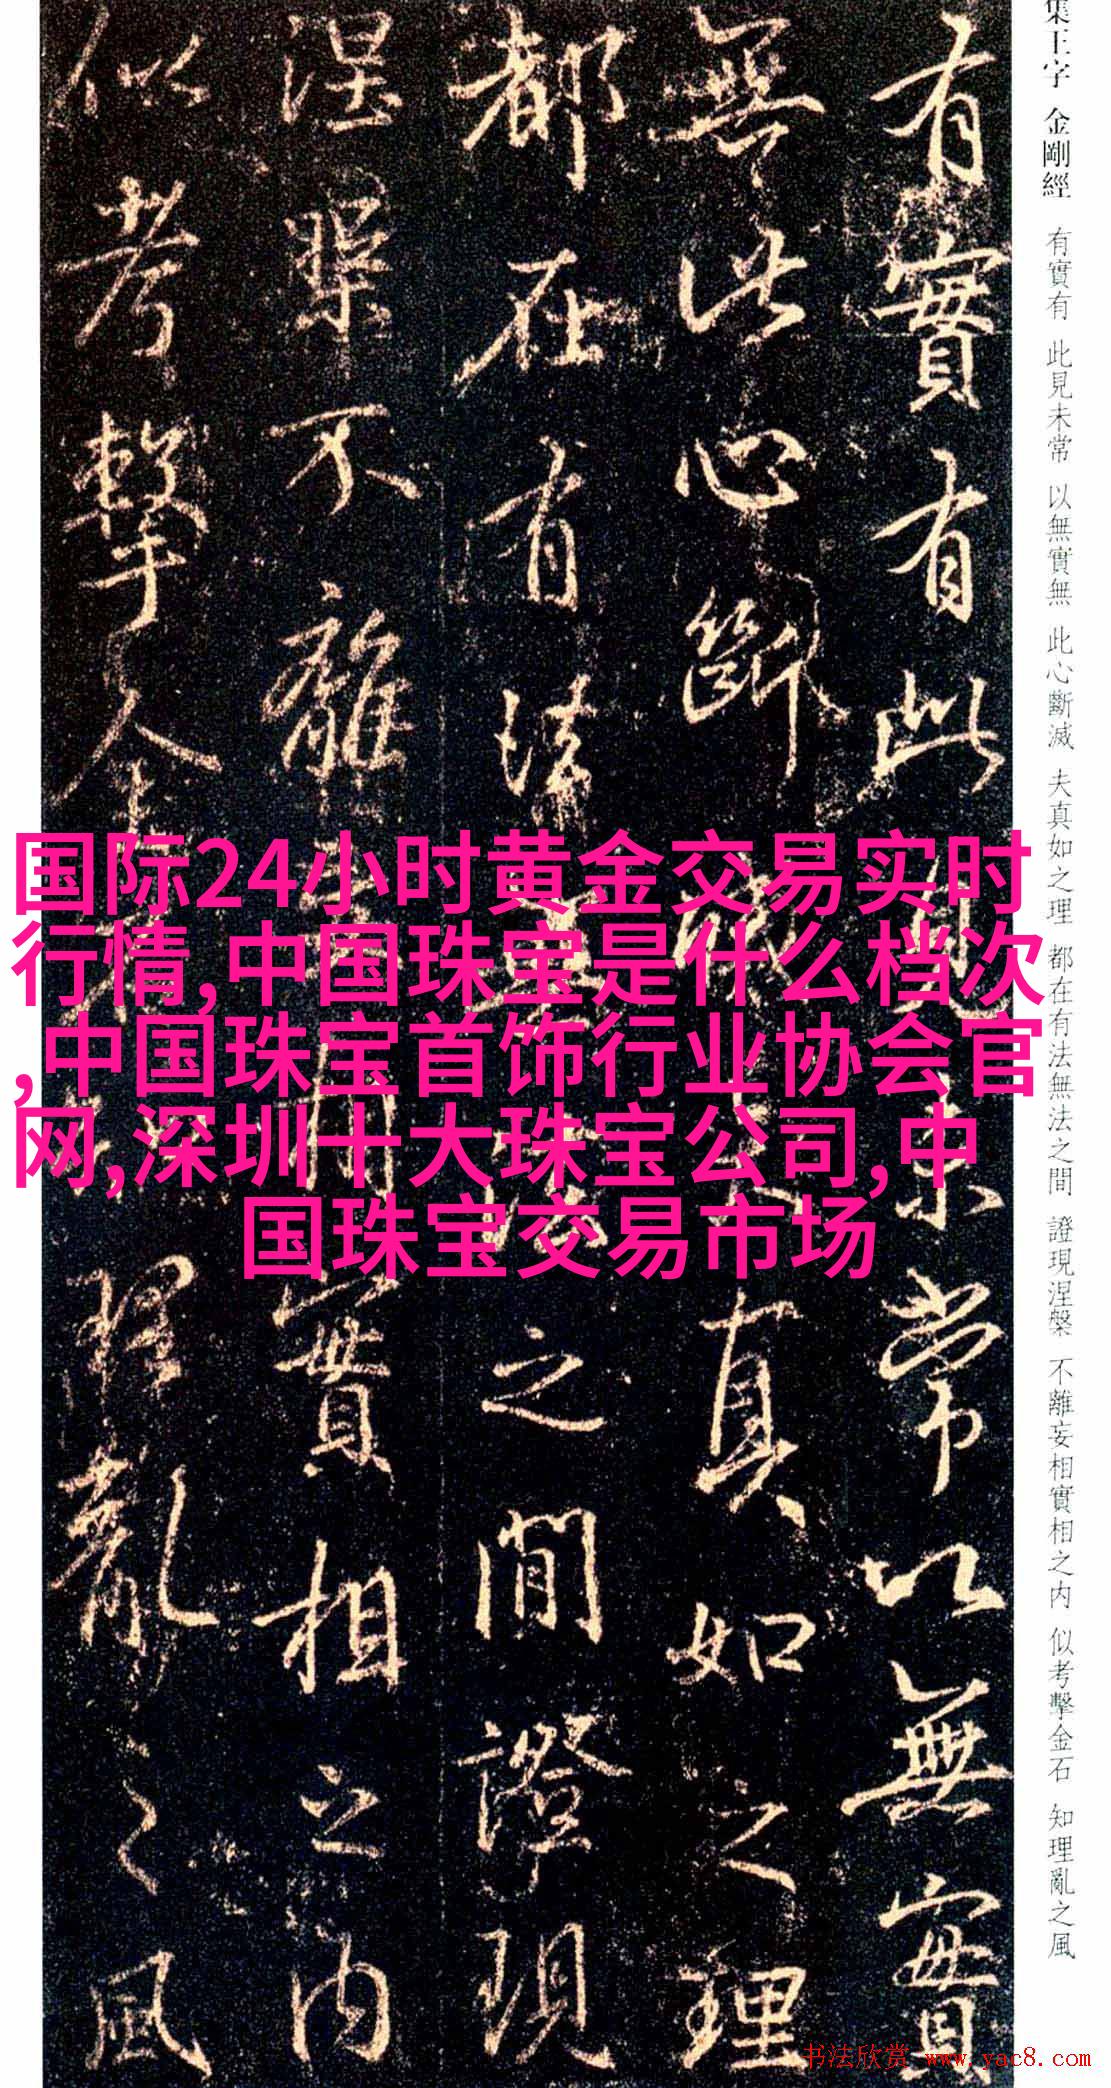 集王字 金剛經 有實有 此見未常 以無實無 此心斷滅 夫真如之理 都在有法無法之間 證現涅槃 不離妄相實相之内 似考擊金石 知理亂之風
有實有此見未常以無實
無此心斷滅夫真如之理
都在有法無法之間證現
涅槃不離妄相實相之内
似考擊金石知理亂之風
国际24小时黄金交易实时
行情,中国珠宝是什么档次
,中国珠宝首饰行业协会官
网,深圳十大珠宝公司,中
国珠宝交易市场
书法欣赏 www.yac8.com